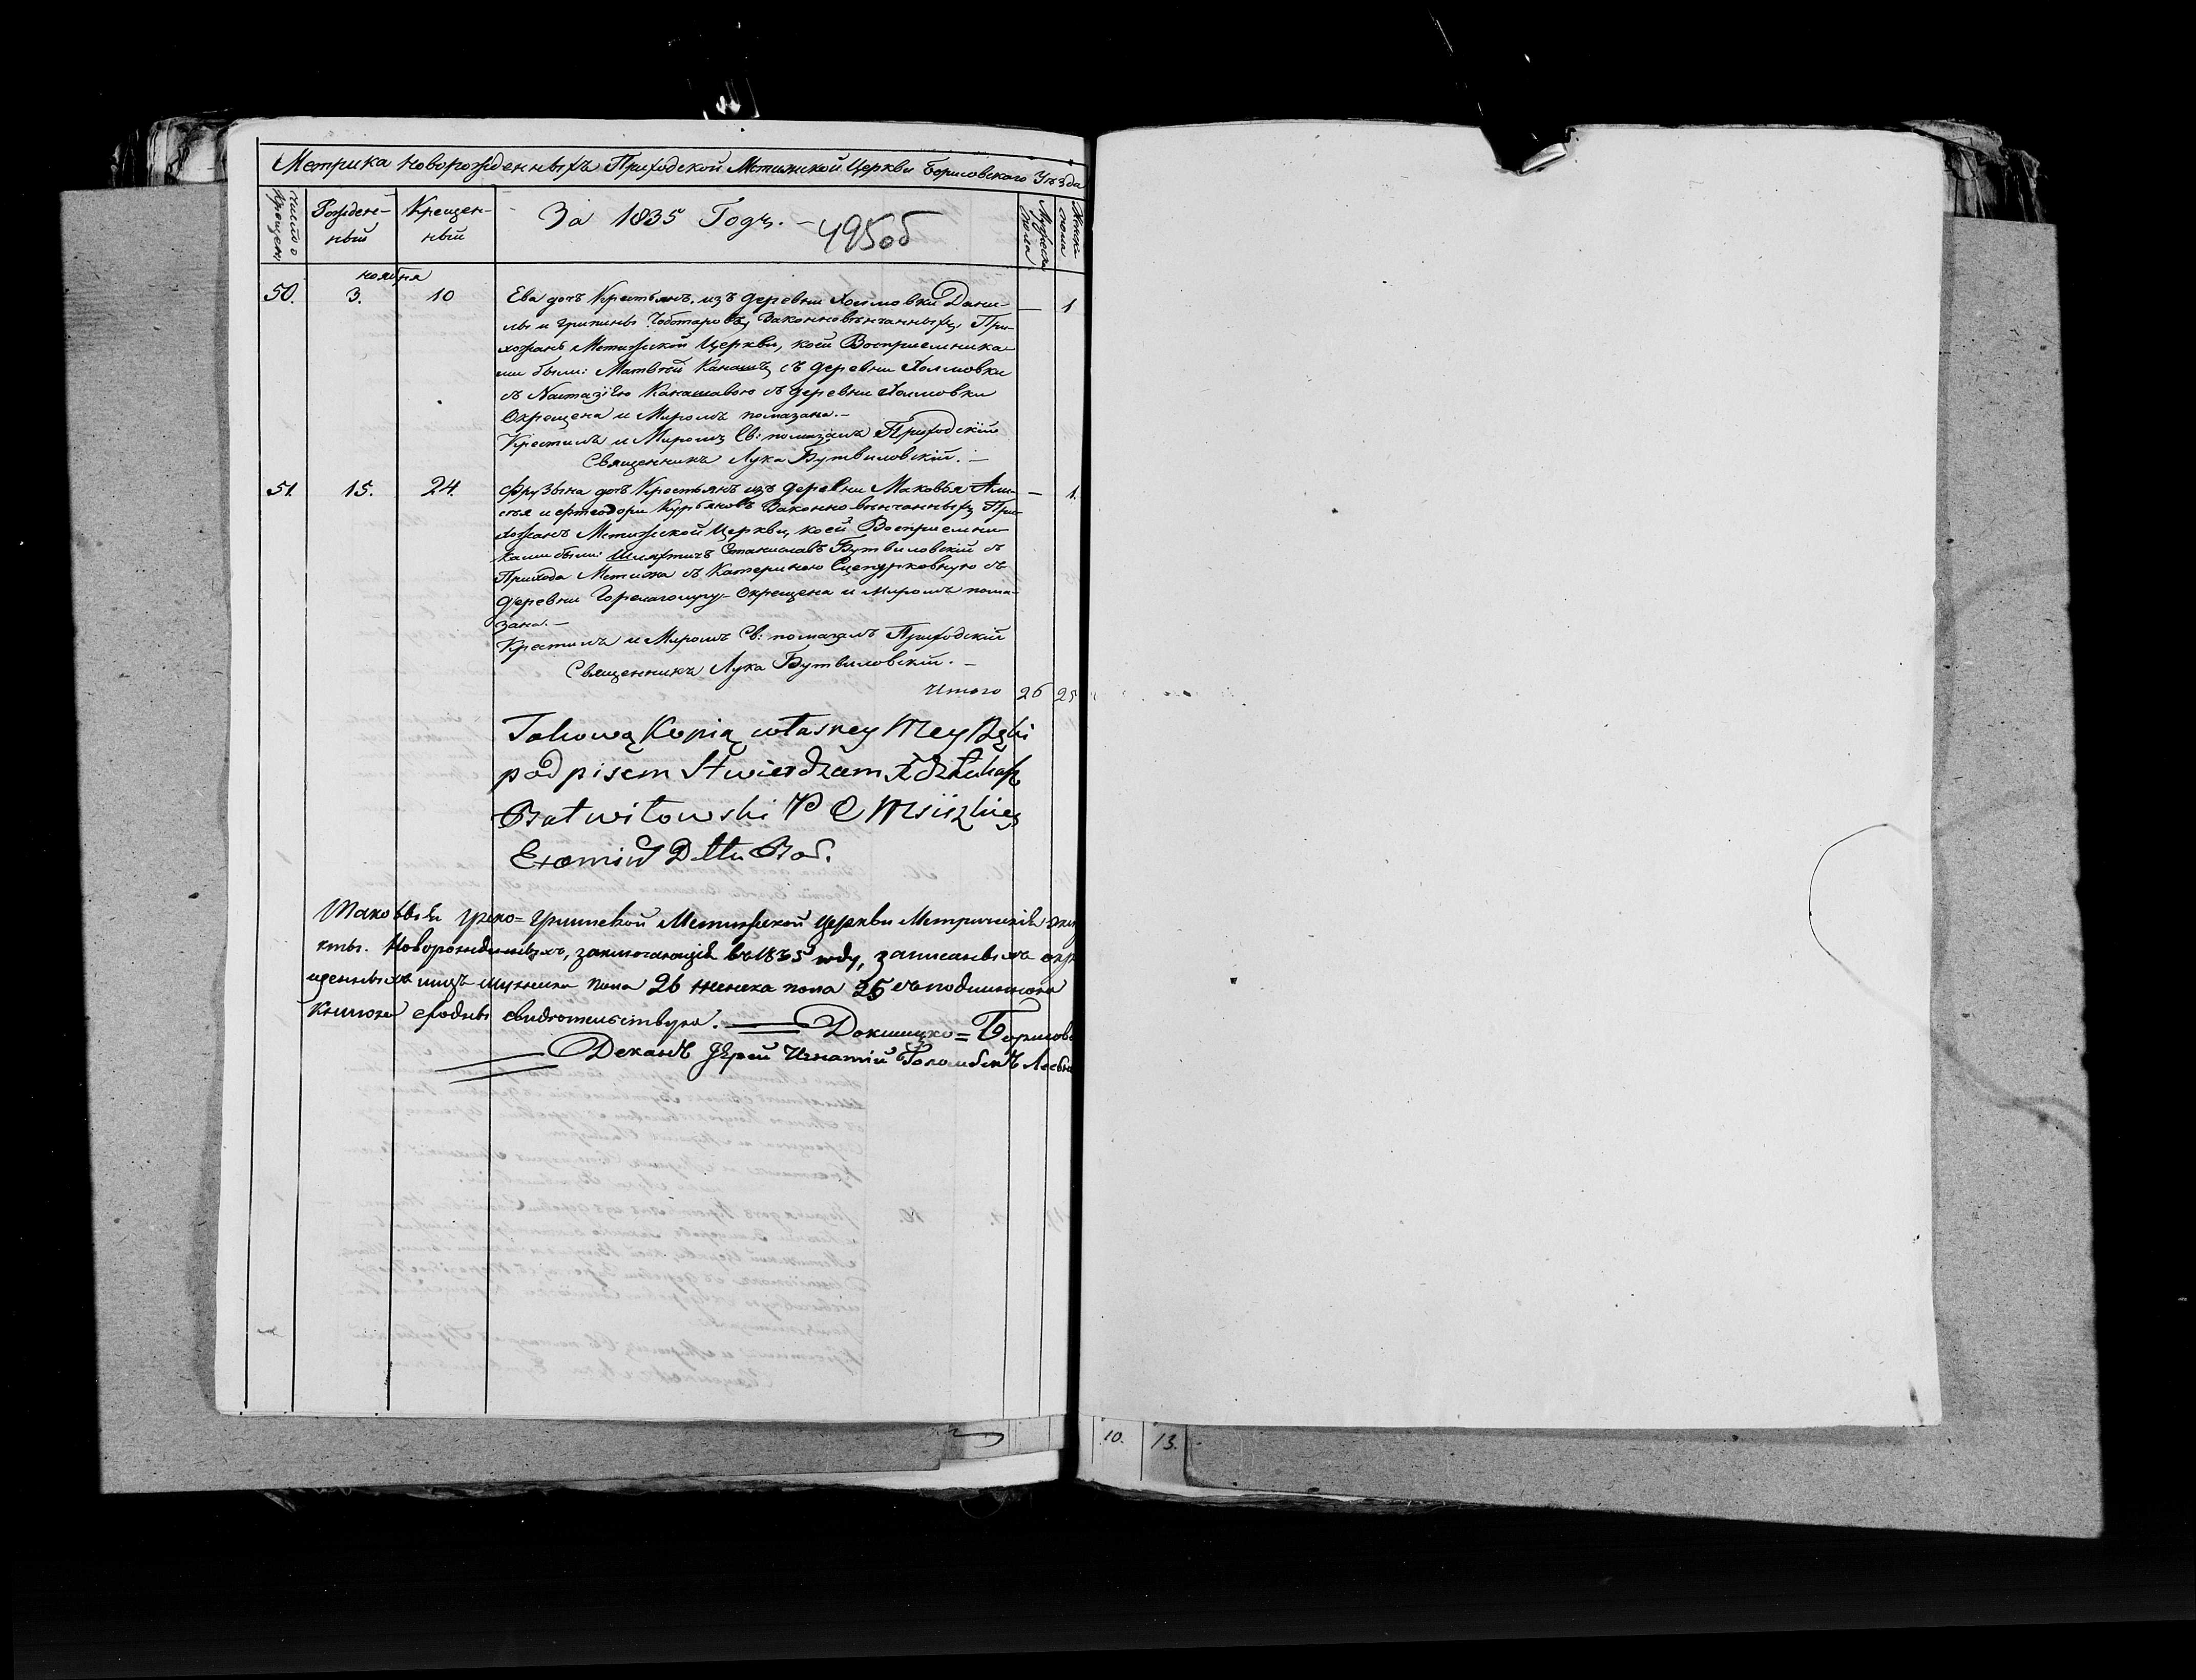 Метрика новорожденныхъ Приходской Мстижской Церкви Борисовского Уѣзда
Число о Крещен
Рожден-
ный
Крещен-
ный
За 1835 Годъ. –
495об
Мужеска пола
Женск пола
ноября
50. 3. 10 Ева дочь Крестьянъ изъ деревни Холмовки Дани- — 1
лы и Грипины Чоботаровъ, Законновѣнчанныхъ, При-
хожанъ Мстижской Церкви, коей Восприемника
ми были: Матвѣй Канашъ съ деревни Холмовки
съ Настазіею Канашавою съ деревни Холмовки
Окрещена и Миромъ помазана. –
Крестилъ и Миромъ Св: помазалъ Приходскій
Священникъ Лука Бутвиловскій. –
51. 15. 24. Фрузына дочь Крестьянъ изъ деревни Маковья — 1.
Законновѣнчанныхъ При-
хожанъ Мстижской Церкви, коей Восприемни
ками были: Шляхтичъ Станиславъ Бутвиловскій съ
Прихода Мстижа съ Катериною съ
деревни Окрещена и Миромъ пома-
зана. –
Крестилъ и Миромъ Св: помазалъ Приходскій
Священникъ Лука Бутвиловскій. –
Итого 26 25
Takową Kopią własney Mey Ręki
podpisem Stwierdzam
Butwiłowski
Таковый Греко=Мстижской Церкви
Новорожденныхъ, въ 1835 году, записанныхъ окр
щенныхъ лицъ мужеска пола 26 женска пола 25 съ подлинною
Книгою сходны свидѣтельствую. — Докшицко=Борисовс
Деканъ Іерей Игнатій Голомбекъ
10. 13.